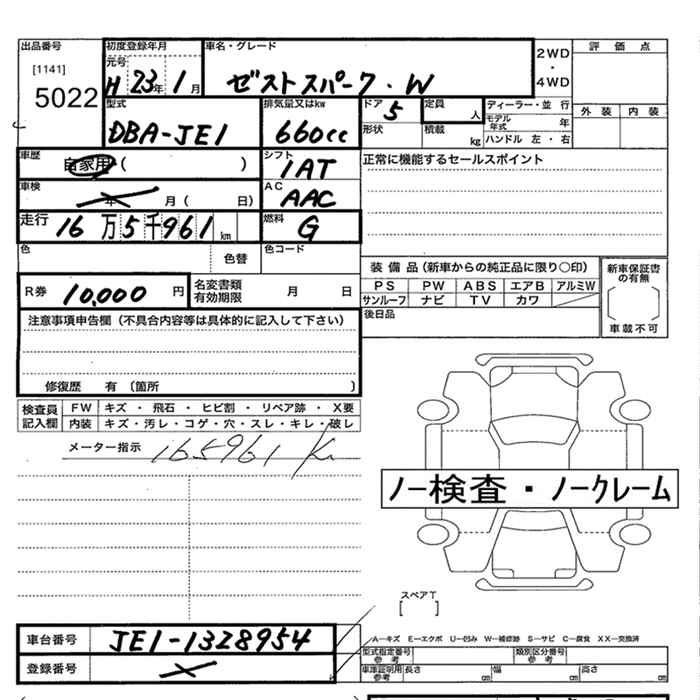 出品番号 初度登録年月 車名・グレード 2WD ・ 4WD 評価点
[1141] 元号
5022 H 23年 1月 ゼストスパーク.W
型式 排気量又はkw ドア 定員 ディーラー・並行 外装 内装
DBA-JE1 660cc 5 人 モデル年式 年
形状 積載 kg ハンドル 左・右
車歴 自家用( ) シフト 1AT 正常に機能するセールスポイント
車検 年 月( 日) AC AAC
走行 16万5千961km 燃料 G
色 色替 色コード
装備品(新車からの純正品に限り○印) 新車保証書の有無
R券 10,000円 名変書類有効期限 月 日 PS PW ABS エアB アルミW
サンルーフ ナビ TV カワ
注意事項申告欄(不具合内容等は具体的に記入して下さい) 後日品 車載不可
修復歴 有(箇所 )
検査員記入欄 FW キズ・飛石・ヒビ割・リペア跡・X要
内装 キズ・汚レ・コゲ・穴・スレ・キレ・破レ
メーター指示 165961 K
ノー検査・ノークレーム
スペアT
[ ]
車台番号 JE1-1328954 A―キズ E―エクボ U―凹み W―補修跡 S―サビ C―腐食 XX―交換済
登録番号 型式指定番号参考 類別区分番号参考
車庫証明用参考 長さ cm 幅 cm 高さ cm